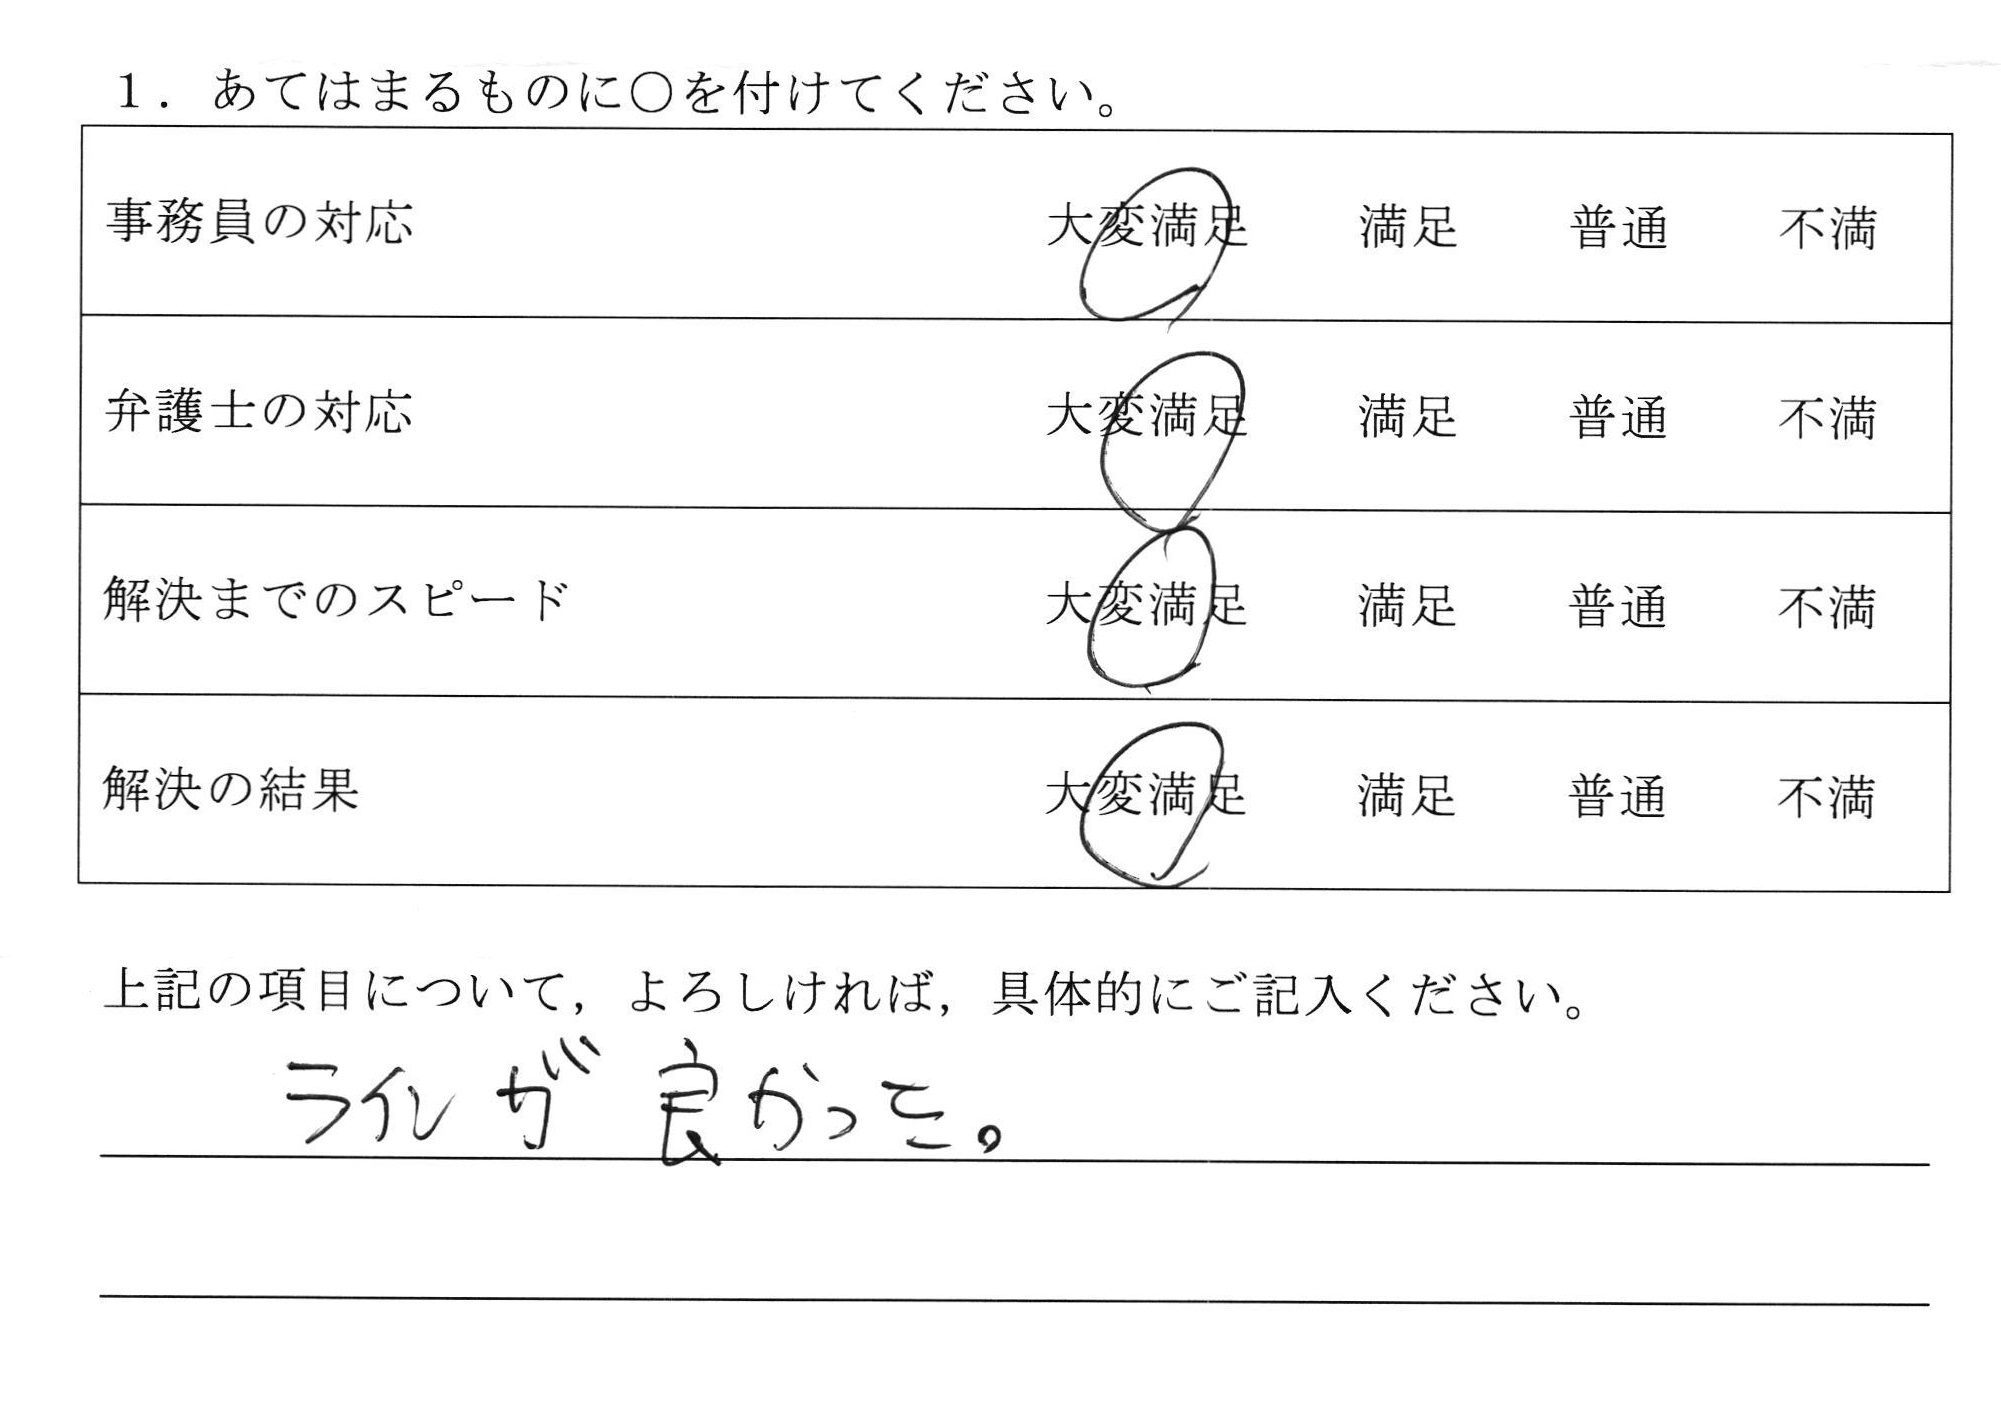 １．あてはまるものに〇を付けてください。
事務員の対応 大変満足 満足 普通 不満
弁護士の対応 大変満足 満足 普通 不満
解決までのスピード 大変満足 満足 普通 不満
解決の結果 大変満足 満足 普通 不満
上記の項目について，よろしければ，具体的にご記入ください。
ラインが良かった。